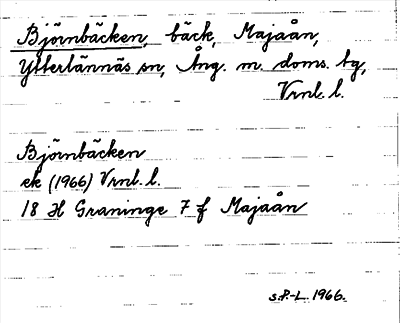 Björnbäcken, bäck, Majaån,
Ytterlännäs sn, Ång. m. doms. tg,
Vrnl. l.
Björnbäcken
ek (1966) Vrnl. l.
18 H Graninge 7 f Majaån
S.P-L. 1966.